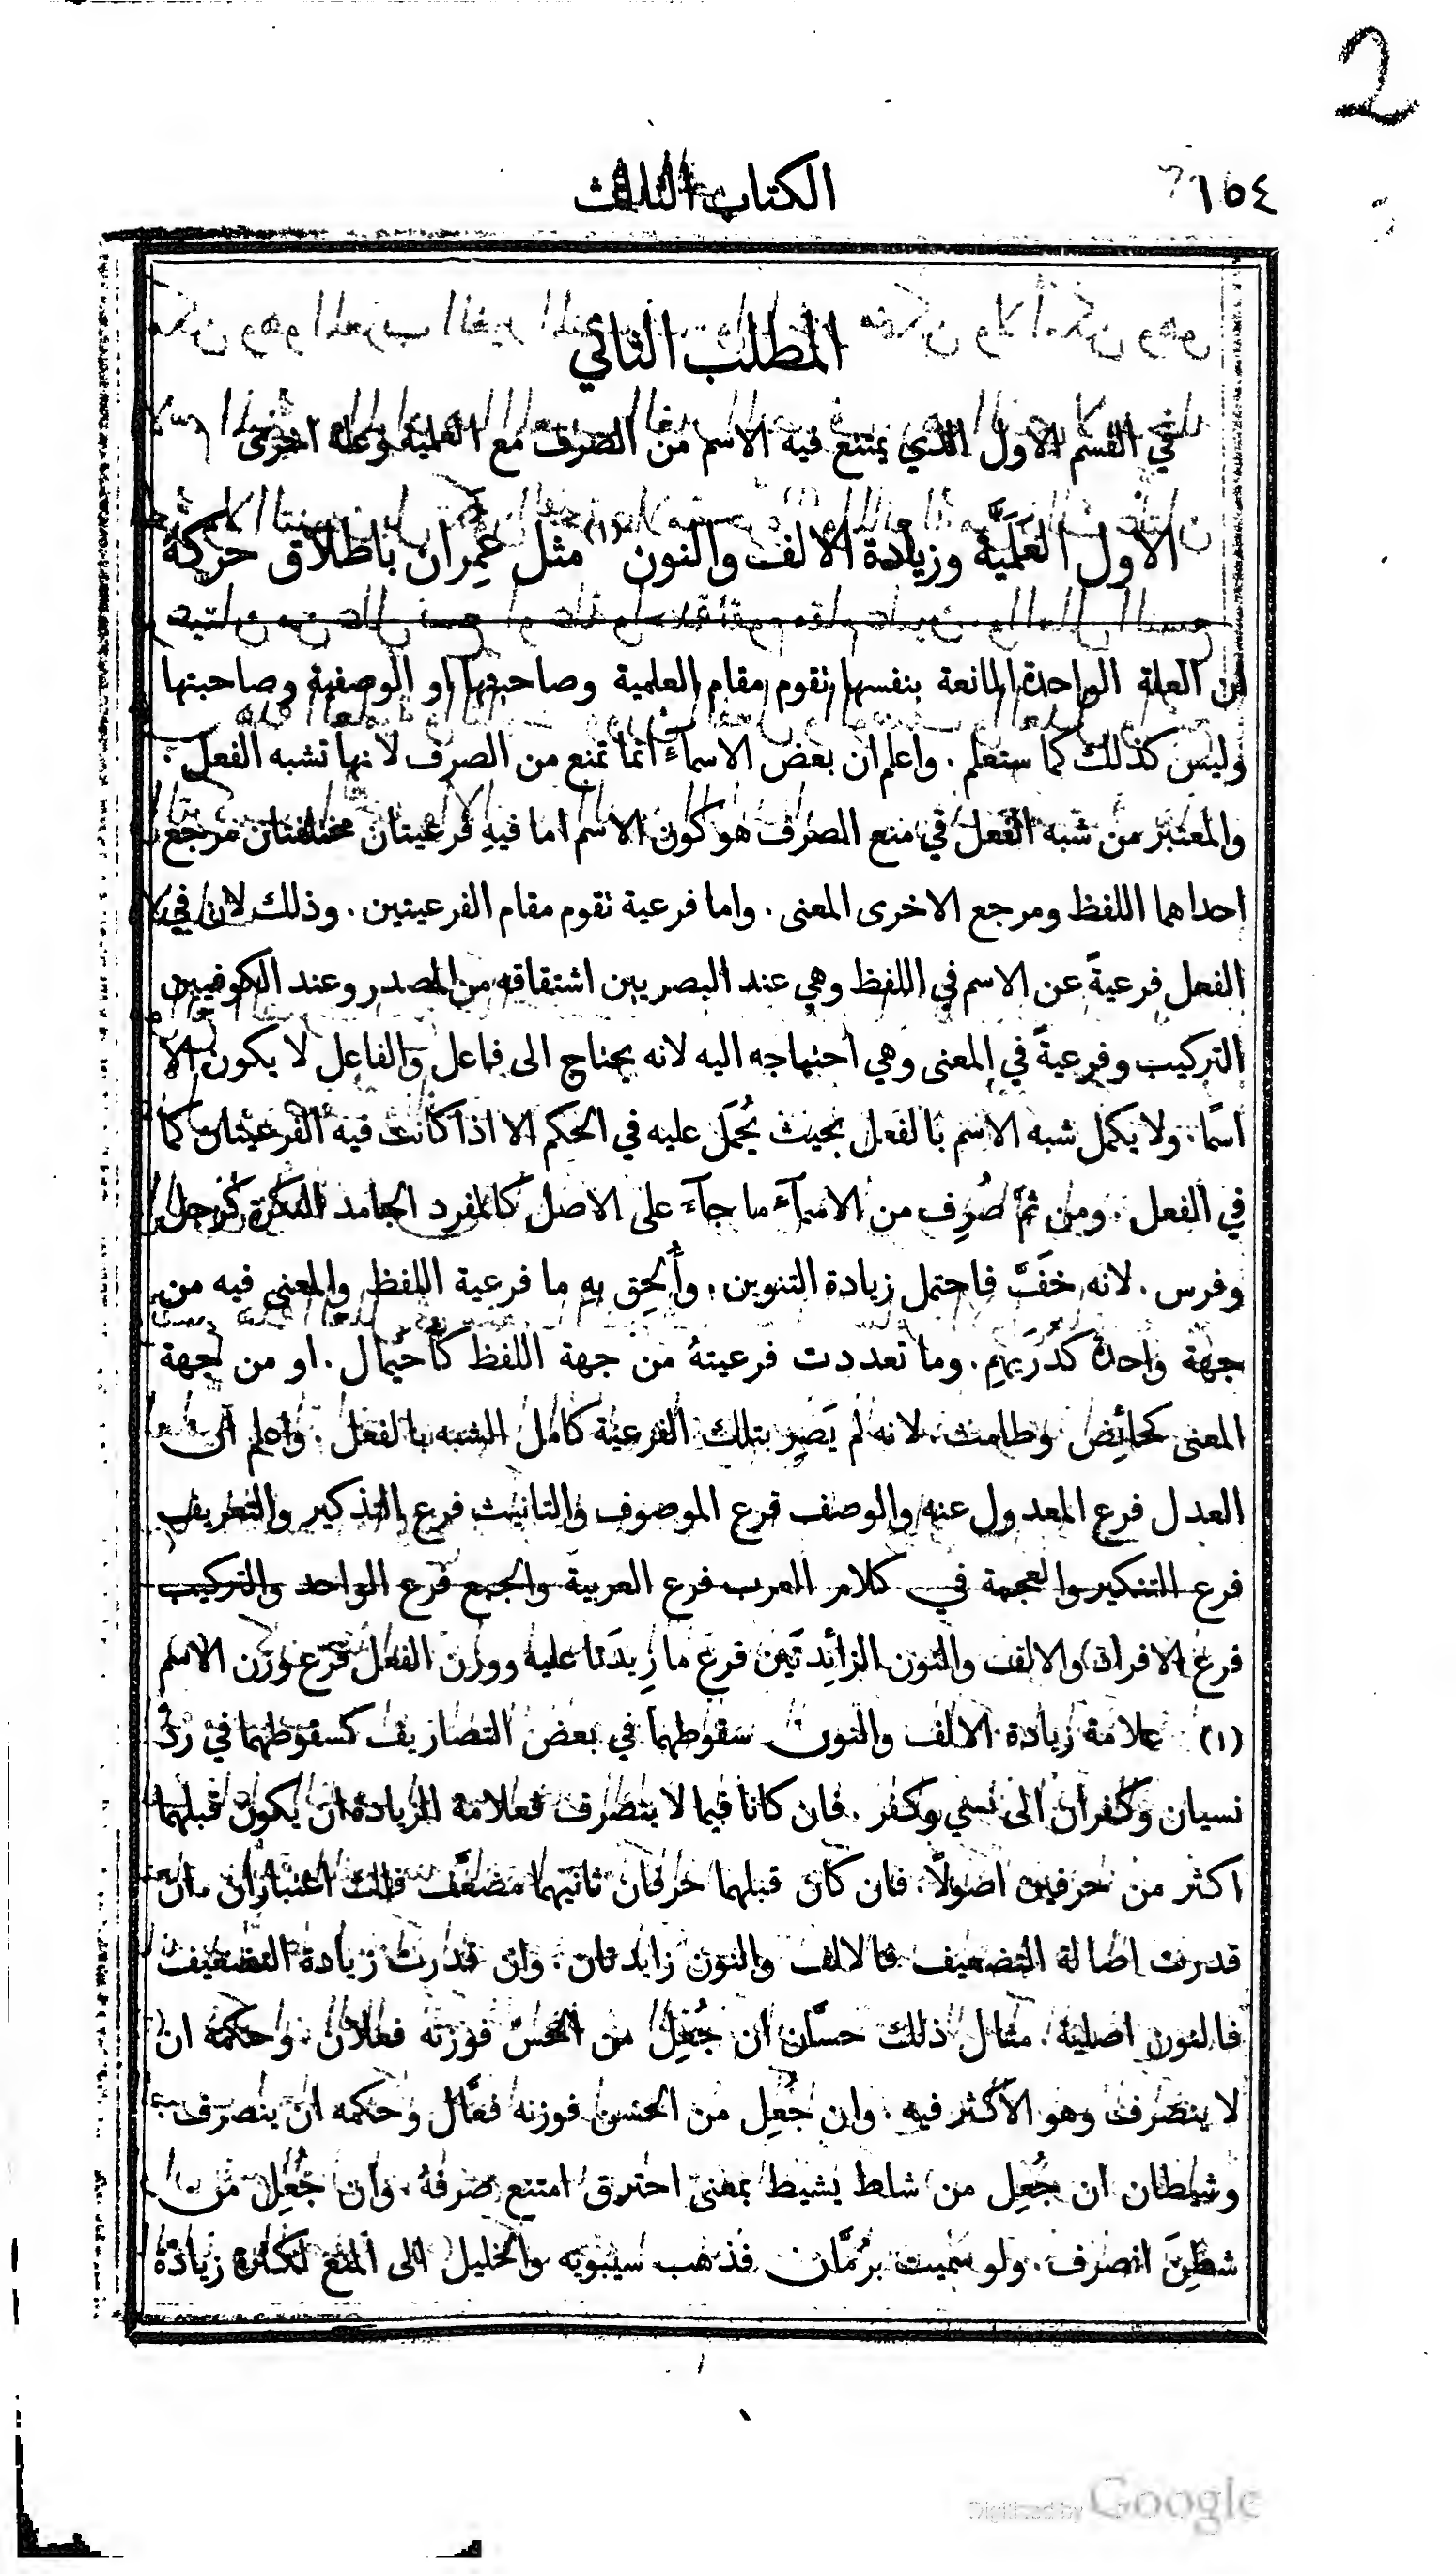 2
١٥٤
الكتاب الثالث
المطلب الثاني
في القسم الاول الذي يمتنع فيه الاسم من الصرف مع العلمية وعلة اخرى
الاول العَلَميَّة وزيادة الالف والنون (١) مثل عِمران باطلاق حركة
من العلة الواحدة المانعة بنفسها نقوم مقام العلمية وصاحبتها او الوصفية وصاحبتها
وليس كذلك كما ستعلم . واعلم ان بعض الاسمآءِ انما تمنع من الصرف لانها تشبه الفعل .
والمعتبر من شبه الفعل في منع الصرف هو كون الاسم اما فيهِ فرعيتان مختلفتان مرجع
احداهما اللفظ ومرجع الاخرى المعنى . واما فرعية نقوم مقام الفرعيتين . وذلك لان في
الفعل فرعيةً عن الاسم في اللفظ وهي عند البصريين اشتقاقه من المصدر وعند الكوفيين
التركيب وفرعيةً في المعنى وهي احتياجه اليه لانه يحتاج الى فاعل والفاعل لا يكون الا
اسمًا . ولا يكمل شبه الاسم بالفعل بحيث يُحمَل عليه في الحكم الا اذا كانت فيه الفرعيتان كما
في الفعل . ومن ثمَّ صُرِف من الاسمآءَ ما جآءَ على الاصل كالمفرد الجامد النكرة كرجل
وفرس . لانه خفَّ فاحتمل زيادة التنوين . وأُلحِق بهِ ما فرعية اللفظ والمعنى فيه من
جهة واحدة كدُرَيهِم . وما تعددت فرعيتهُ من جهة اللفظ كأُحَيمال . او من جهة
المعنى كحائِض وطامث . لانه لم يَصِر بتلك الفرعية كامل الشبه بالفعل . واعلم ان
العدل فرع المعدول عنه والوصف فرع الموصوف والتانيث فرع التذكير والتعريف
فرع التنكير والعجمة في كلام العرب فرع العربية والجمع فرع الواحد والتركيب
فرع الافراد والالف والنون الزائِدتَين فرع ما زِيدَتا عليه ووزن الفعل فرع وزن الاسم
(١) علامة زيادة الالف والنون سقوطهما في بعض التصاريف كسقوطهما في ردّ
نسيان وكفران الى نسي وكفر . فان كانا فيما لا يتصرف فعلامة الزيادة ان يكون قبلهما
اكثر من حرفين اصولًا . فان كان قبلهما حرفان ثانيهما مضعَّف فلك اعتباران . ان
قدرت اصالة التضعيف فالالف والنون زايدتان . وان قدرت زيادة التضعيف
فالنون اصلية . مثال ذلك حسَّان ان جُعِل من الحسّ فوزنه فعلان . وحكمه ان
لا ينصرف وهو الاكثر فيه . وان جُعِل من الحسن فوزنه فعَّال وحكمه ان ينصرف
وشيطان ان جُعِل من شاط يشيط بمعنى احترق امتنع صرفهُ . وان جُعِل من
شطِنَ انصرف . ولو سميت برُمَّان فذهب سيبويه والخليل الى المنع لكثرة زيادة
Digitized by Google